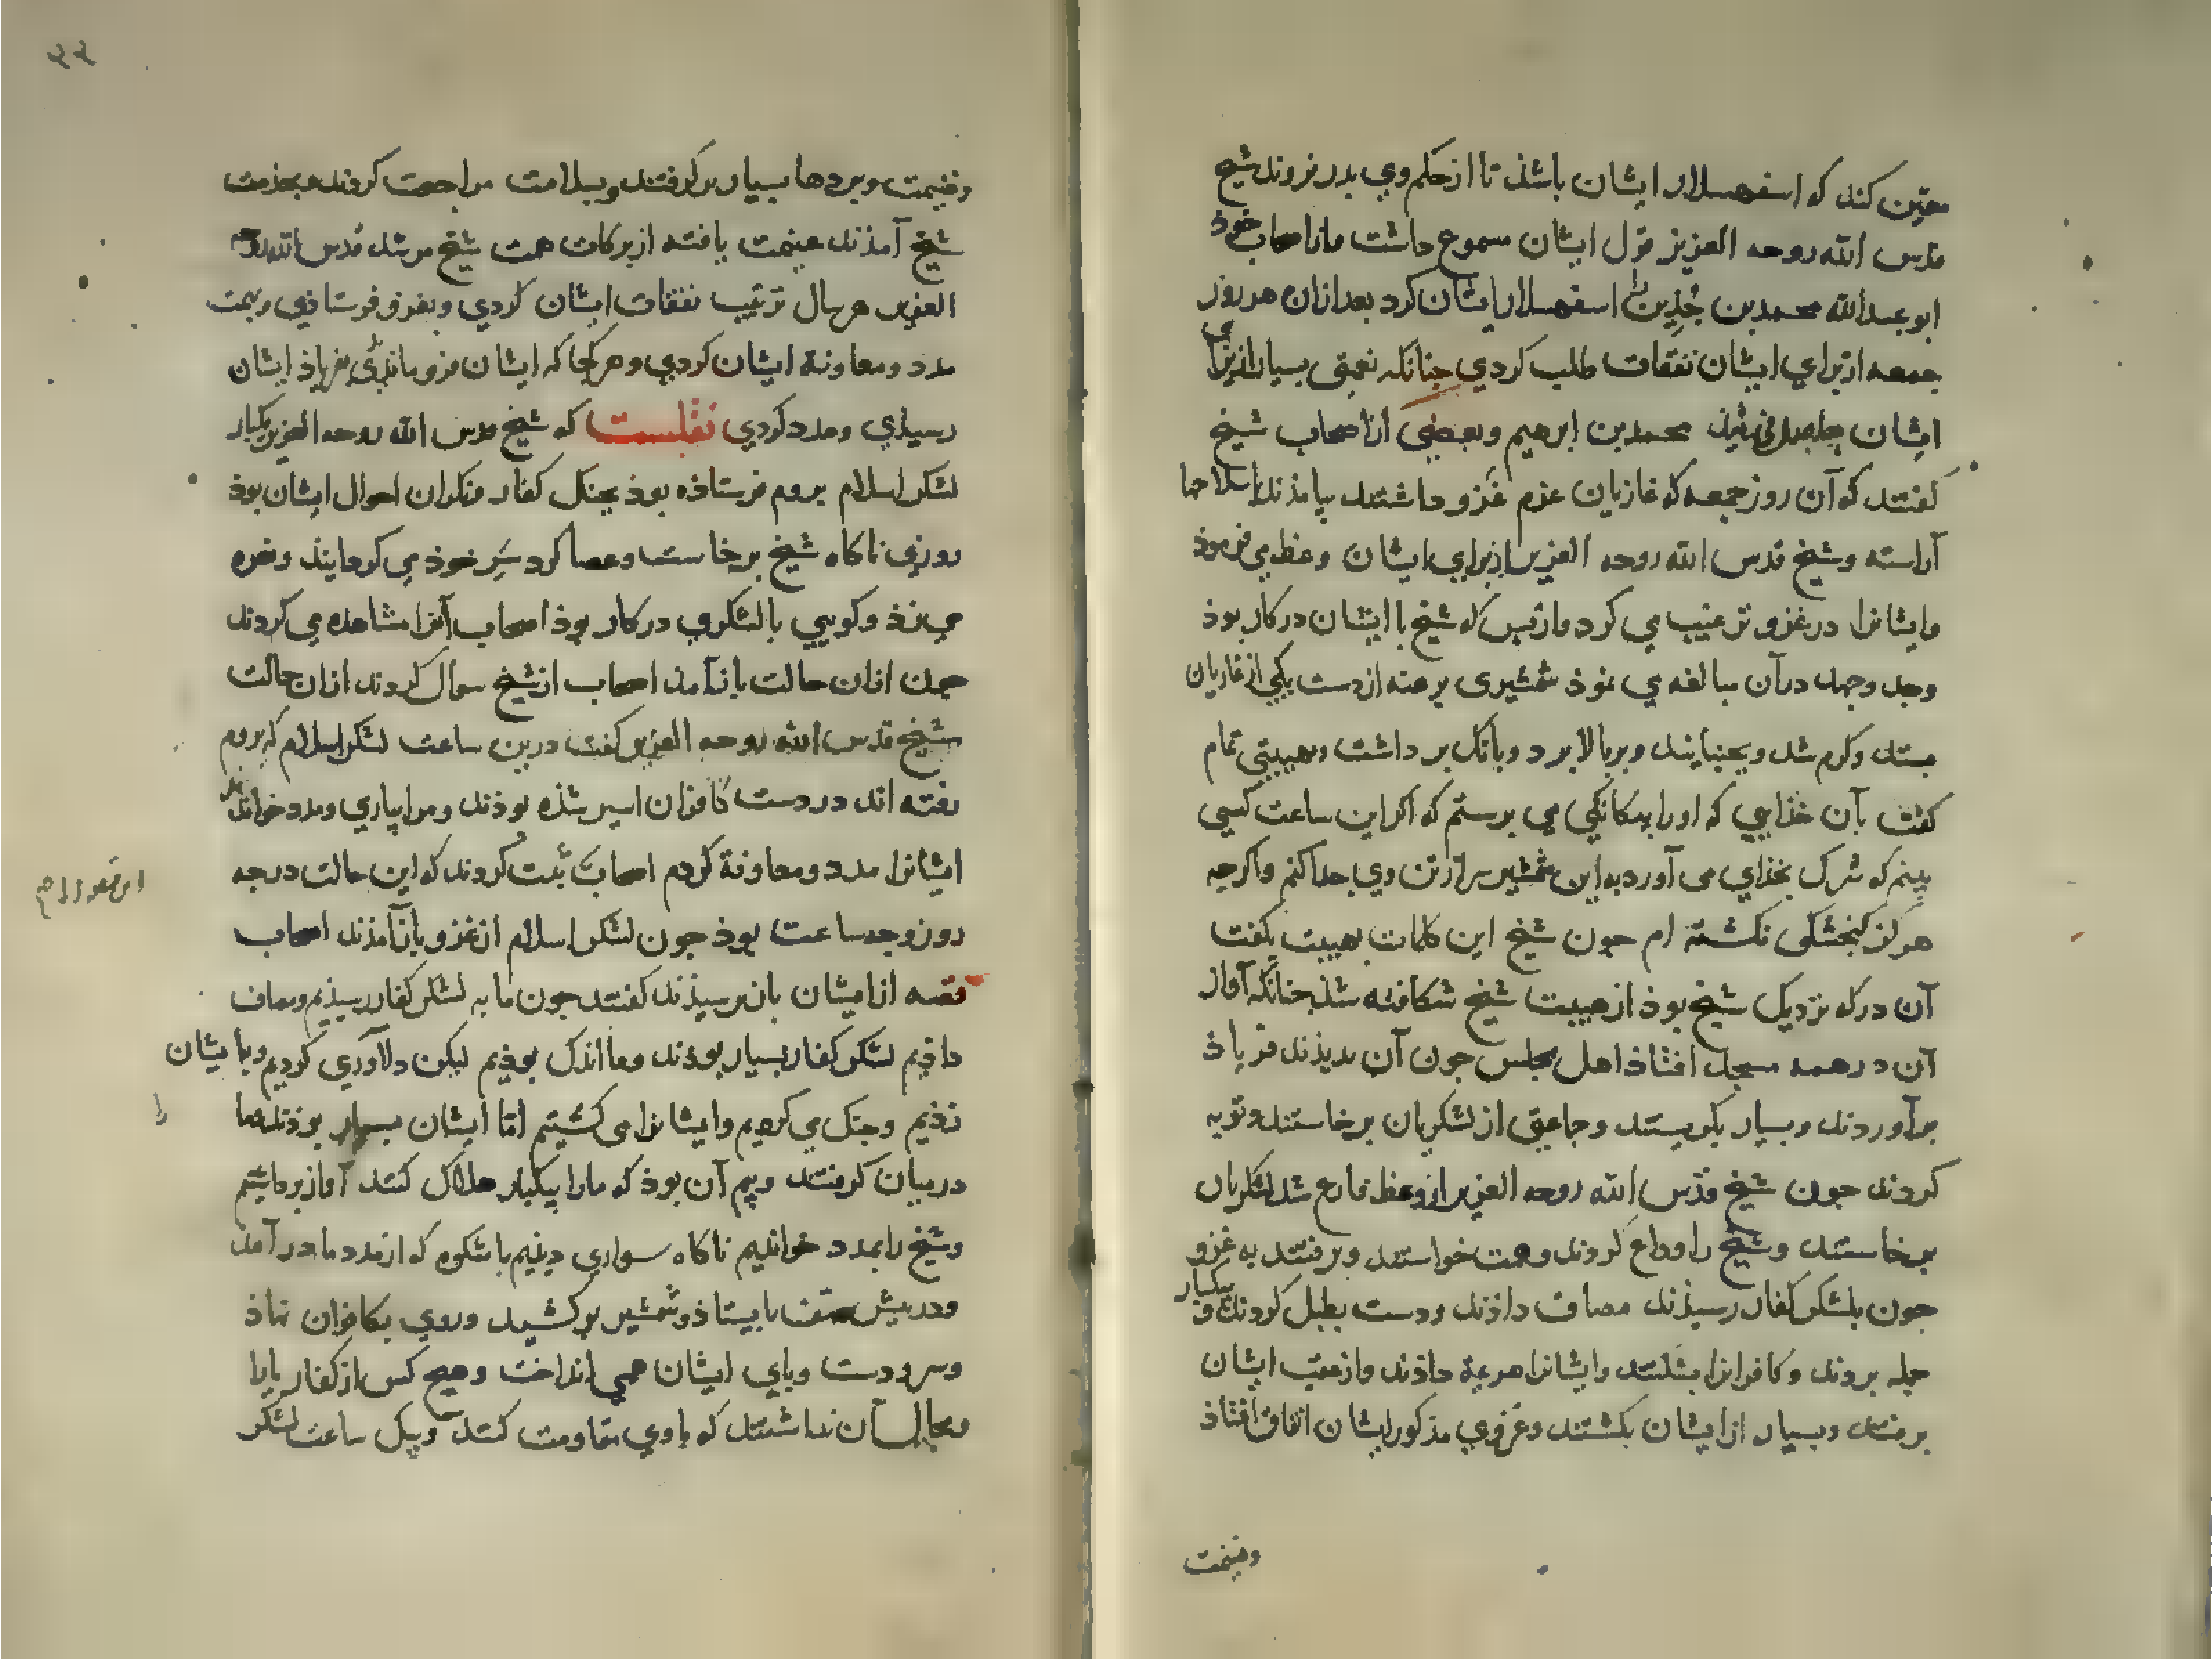 معین کند که اسفهسلار ایشان باشد تا از حکم وی بدر نروند شیخ
قدس الله روحه العزیز قول ایشان مسموع داشت و از اصحاب خود
ابو عبدالله محمد بن جذین را اسفهسلار ایشان کرد بعد ازان هر روز
جمعه از برای ایشان نفقات طلب کردی جنانکه نعمتی بسیار از برای
ایشان حاصل محمد بن ابرهیم و بعضی از اصحاب شیخ
کفتند که آن روز جمعه که غازیان عزم غزو داشتند بیامذند با سلاحها
آراسته و شیخ قدس الله روحه العزیز از برای ایشان وعظ می فرموذ
و ایشانرا در غزو ترغیب می کرد و از بس که شیخ با ایشان در کار بوذ
وجد وجهد در آن مبالغه می نموذ شمشیری برهنه از دست یکی از غازیان
بستد و کرم شد و بجنبانید و بر بالا برد و بانک بر داشت و بهیبتی تمام
کفت بآن خذایی که او را بیکانکی می برستم که اکر این ساعت کسی
بینم که شرک بخذای می آورد به این شمشیر سر از تن وی جدا کنم و اکرجه
هرکز کنجشکی نکشته ام جون شیخ این کلمات بهیبت بکفت
آن درکه نزدیک شیخ بوذ از هیبت شیخ شکافته شد جنانکه آواز
آن در همه مسجد افتاذ اهل مجلس جون آن بدیذند فریاذ
برآوردند و بسیار بکریستند و جماعتی از لشکریان برخاستند و توبه
کردند جون شیخ قدس الله روحه العزیز از وعظ فارغ شد لشکریان
برخاستند و شیخ را وداع کردند و همت خواستند و برفتند به غزو
جون بلشکر کفار رسیذند مصاف داذند و دست بطبل کردند و بیکبار
حمله بردند و کافرانرا بشکستند و ایشانرا هزیمة داذند و از عقب ایشان
برفتند و بسیار از ایشان بکشتند و غزوی مذکور ایشان اتفاق افتاذ
وغنیمت
۲۲
وغنیمت و بردها بسیار برکرفتند و بسلامت مراجعت کردند و بخدمت
شیخ آمذند غنیمت یافته از برکات همت شیخ مرشد قدس الله روحه
العزیز هر سال ترتیب نفقات ایشان کردی و بغزو فرستاذی و بهمت
مدد و معاونة ایشان کردی و هر کجا که ایشان فرو ماندندی بفریاذ ایشان
رسیذی و مدد کردی نقلست که شیخ قدس الله روحه العزیز یکبار
لشکر اسلام بروم فرستاذه بوذ بجنک کفار و نکران احوال ایشان بوذ
روزی ناکاه شیخ برخاست و عصا کرد سر خوذ می کردانید و نعره
می زد و کویی با لشکری در کار بوذ اصحاب آنرا مشاهده می کردند
جون ازان حالت بازآمذ اصحاب از شیخ سوال کردند ازان حالت
شیخ قدس الله روحه العزیز کفت درین ساعت لشکر اسلام که بروم
رفته اند در دست کافران اسیر شذه بوذند و مرا بیاری و مدد خواندند
ایشانرا مدد و معاونة کردم اصحاب ثبت کردند که این حالت درجه
روز و جه ساعت بوذ جون لشکر اسلام از غزو بازآمذند اصحاب
قصه از ایشان باز برسیذند کفتند جون ما به لشکر کفار رسیذیم و مصاف
داذیم لشکر کفار بسیار بوذند و ما اندک بوذیم لیکن دلاوری کردیم و با ایشان
زذیم و جنک می کردیم و ایشانرا می کشتیم اما ایشان بسیار بوذند ما را
در میان کرفتند و بیم آن بوذ که ما را بیکبار هلاک کنند آواز برداشتیم
و شیخ را بمدد خواندیم ناکاه سواری دیذیم با شکوه که از مدد ما در آمذ
و در بیش صف بایستاذ و شمشیر برکشید و روی بکافران نهاذ
و سر و دست و بای ایشان همی انداخت و هیچ کس از کفار یارا
و مجال آن نداشتند که با وی مقاومت کنند و بیک ساعت لشکر